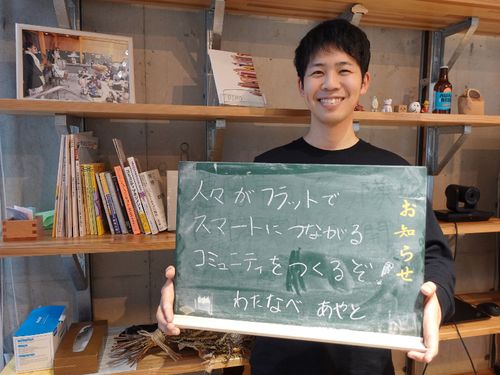 お知らせ
人々がフラットで
スマートにつながる
コミュニティをつくるぞ!
わたなべ あやと